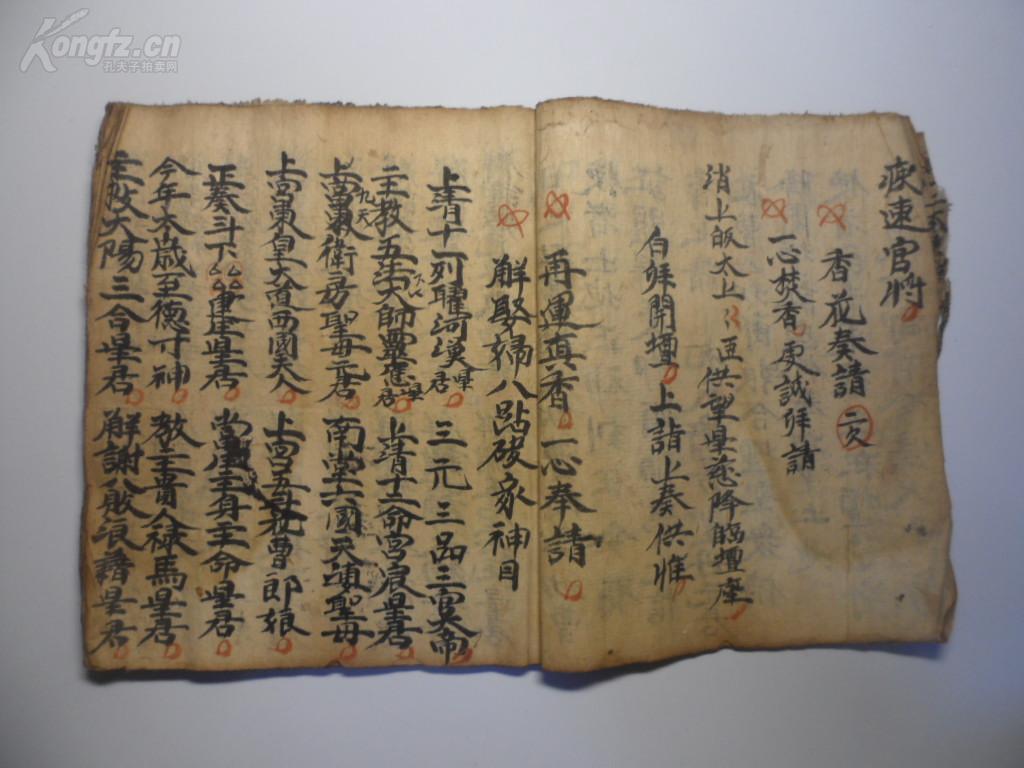 Kongfz.cn
孔夫子拍卖网
疾速官将
香花奏請 二次
一心焚香 虔誠拜請
消上皈太上 供望星慈降臨壇座
白拜開壇 上詣上奏供
再運真香 一心奉請
解娶婦八敗破家神目
上清十一列曜河漢星君 三元三品三官大帝
主教五法大師靈應星君 上清十二命宮辰星君
上宮 九天衛房聖母元君 南堂六國天 聖母
上宮東皇大道西國天人 上宮五 曹郎娘
正奏斗下 星君 當生本身主命星君
今年太歲至德寸神 教主貴人祿馬星君
主照太陽三合星君 解謝八敗 星君